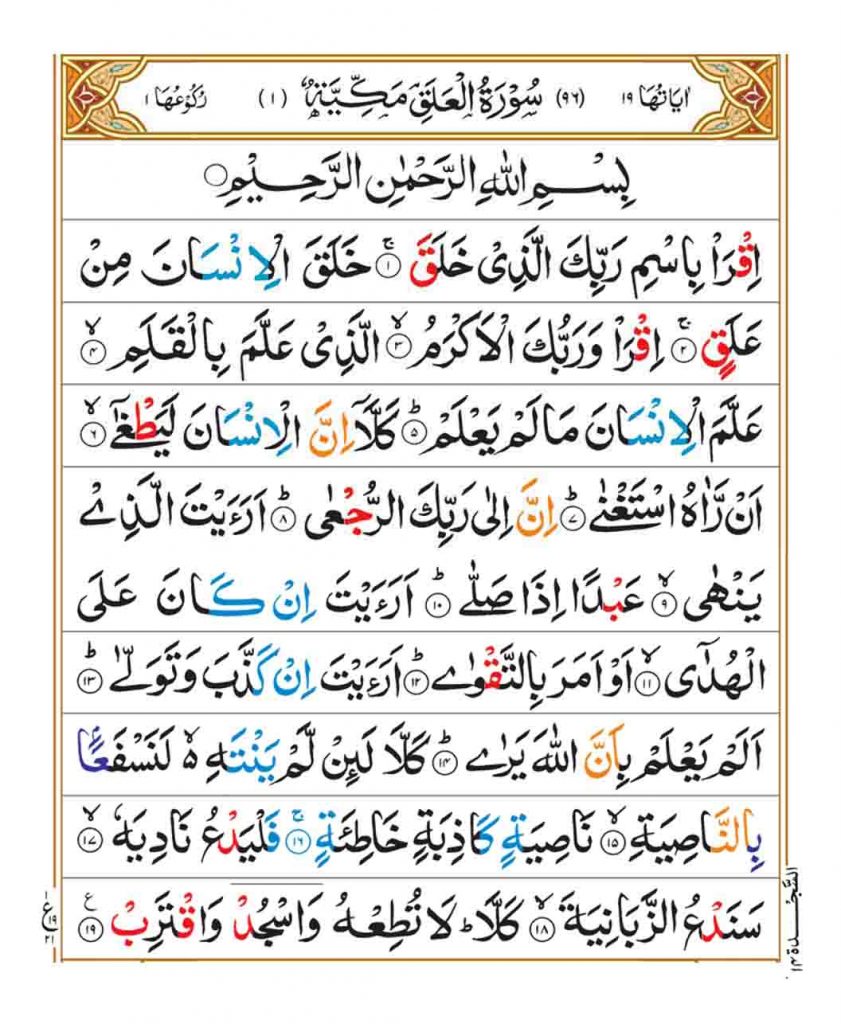 اٰیَاتُهَا ١٩ (٩٦) سُوْرَةُ الْعَلَقِ مَكِّیَّةٌ (١) رُكُوْعُهَا ١
بِسْمِ اللّٰهِ الرَّحْمٰنِ الرَّحِیْمِ ○
اِقْرَاْ بِاسْمِ رَبِّكَ الَّذِیْ خَلَقَ ۚ‏﴿١﴾ خَلَقَ الْاِنْسَانَ مِنْ
عَلَقٍ ۚ‏﴿٢﴾ اِقْرَاْ وَرَبُّكَ الْاَكْرَمُ ۙ‏﴿٣﴾ الَّذِیْ عَلَّمَ بِالْقَلَمِ ۙ‏﴿٤﴾
عَلَّمَ الْاِنْسَانَ مَا لَمْ یَعْلَمْ ؕ‏﴿٥﴾ كَلَّاۤ اِنَّ الْاِنْسَانَ لَیَطْغٰۤی ۙ‏﴿٦﴾
اَنْ رَّاٰهُ اسْتَغْنٰی ؕ‏﴿٧﴾ اِنَّ اِلٰی رَبِّكَ الرُّجْعٰی ؕ‏﴿٨﴾ اَرَءَیْتَ الَّذِیْ
یَنْهٰی ۙ‏﴿٩﴾ عَبْدًا اِذَا صَلّٰی ؕ‏﴿١٠﴾ اَرَءَیْتَ اِنْ كَانَ عَلَی
الْهُدٰۤی ۙ‏﴿١١﴾ اَوْ اَمَرَ بِالتَّقْوٰی ؕ‏﴿١٢﴾ اَرَءَیْتَ اِنْ كَذَّبَ وَتَوَلّٰی ؕ‏﴿١٣﴾
اَلَمْ یَعْلَمْ بِاَنَّ اللّٰهَ یَرٰی ؕ‏﴿١٤﴾ كَلَّا لَىِٕنْ لَّمْ یَنْتَهِ ۙ۬ لَنَسْفَعًۢا
بِالنَّاصِیَةِ ۙ‏﴿١٥﴾ نَاصِیَةٍ كَاذِبَةٍ خَاطِئَةٍ ۚ‏﴿١٦﴾ فَلْیَدْعُ نَادِیَهٗ ۙ‏﴿١٧﴾
سَنَدْعُ الزَّبَانِیَةَ ۙ‏﴿١٨﴾ كَلَّا ؕ لَا تُطِعْهُ وَاسْجُدْ وَاقْتَرِبْ ‏﴿١٩﴾ ع
السَّجْدَة ١٤
١
ع ١٩
٢١